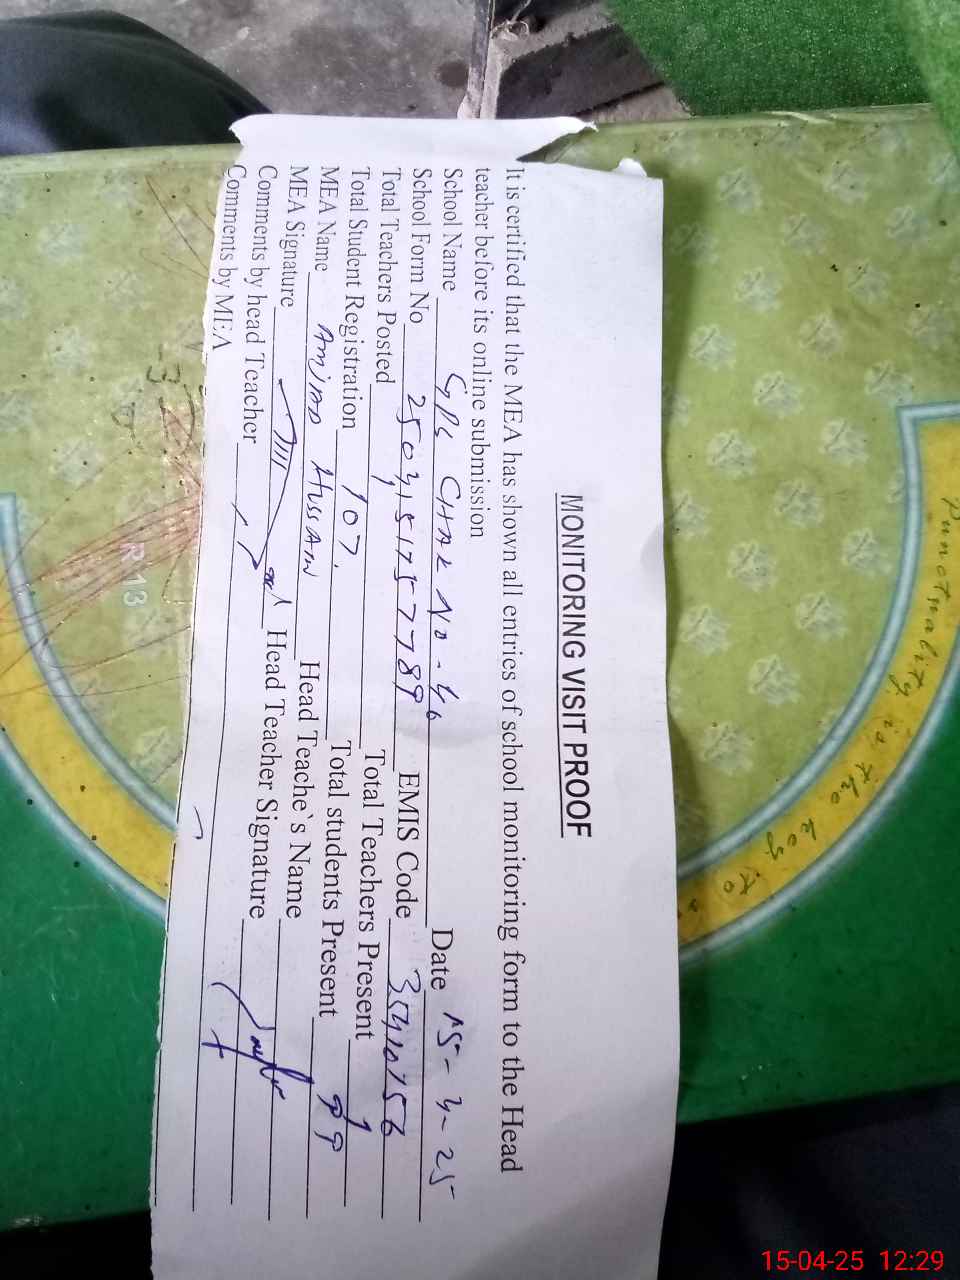 MONITORING VISIT PROOF
It is certified that the MEA has shown all entries of school monitoring form to the Head
teacher before its online submission
School Name GPS CHAK NO-46 Date 15-4-25
School Form No 2504151757789 EMIS Code 35410156
Total Teachers Posted Total Teachers Present 1
Total Student Registration 107. Total students Present 99
MEA Name AMJAD HUSSAIN Head Teache`s Name
MEA Signature Head Teacher Signature
Comments by head Teacher
Comments by MEA
Punctuality is the key To
R 13
15-04-25 12:29